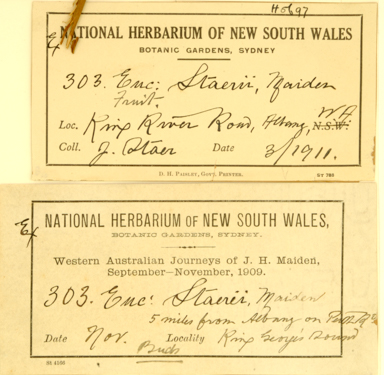 Hob 97
Ex NATIONAL HERBARIUM OF NEW SOUTH WALES
BOTANIC GARDENS, SYDNEY
303. Euc: Staerii, Maiden
Fruit.
Loc. King River Road, Albany, N.S.W. WA
Coll. J. Staer Date 3/1911.
D. H. PAISLEY, GOVT. PRINTER.
ST 789
Ex NATIONAL HERBARIUM OF NEW SOUTH WALES,
BOTANIC GARDENS, SYDNEY.
Western Australian Journeys of J. H. Maiden,
September–November, 1909.
303. Euc: Staerii, Maiden
5 miles from Albany on
Date Nov. Locality King George's Sound
Buds